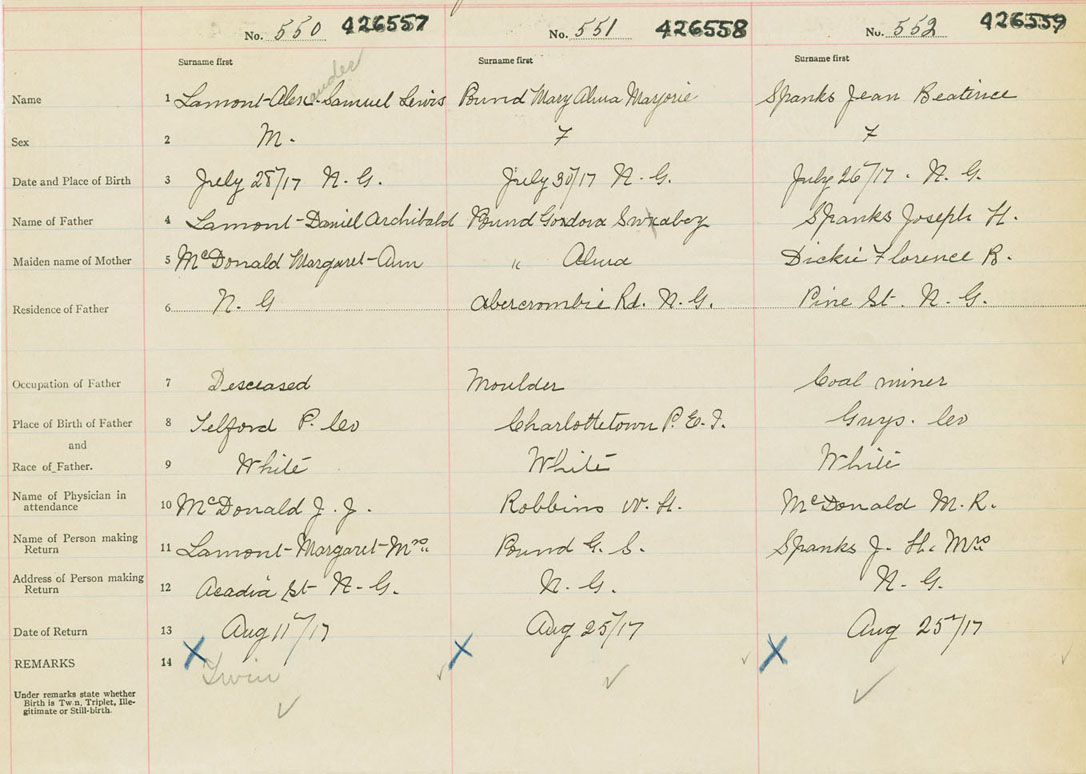 No. 550 426557 No. 551 426558 No. 552 426559
Surname first Surname first Surname first
ander
Name 1 Lamont-Alex. Samuel Lewis Pound Mary Alma Marjorie Spanks Jean Beatrice
Sex 2 M. F F
Date and Place of Birth 3 July 28/17 N. G. July 30/17 N. G. July 26/17. N. G.
Name of Father 4 Lamont-Daniel Archibald Pound Gordon Spanks Joseph H.
Maiden name of Mother 5 McDonald Margaret-Ann " Alma Dickie Florence B.
Residence of Father 6 N. G Abercrombie Rd. N. G. Pine St. N. G.
Occupation of Father 7 Desceased Moulder Coal miner
Place of Birth of Father 8 Telford P. Co Charlottetown P. E. I. Guys. Co
and
Race of Father. 9 White White White
Name of Physician in attendance 10 McDonald J. J. Robbins W. H. McDonald M. R.
Name of Person making Return 11 Lamont-Margaret-Mrs. Pound G. S. Spanks J. H. Mrs
Address of Person making Return 12 Acadia St N. G. N. G. N. G.
Date of Return 13 Aug 11/17 Aug 25/17 Aug 25/17
REMARKS 14 X X X
Twin
Under remarks state whether
Birth is Twin, Triplet, Ille-
gitimate or Still-birth.